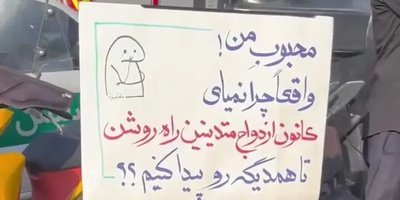 محبوب من!
واقعاً چرا نمیای
کانون ازدواج متدینین راه روشن
تا همدیگه رو پیدا کنیم؟؟